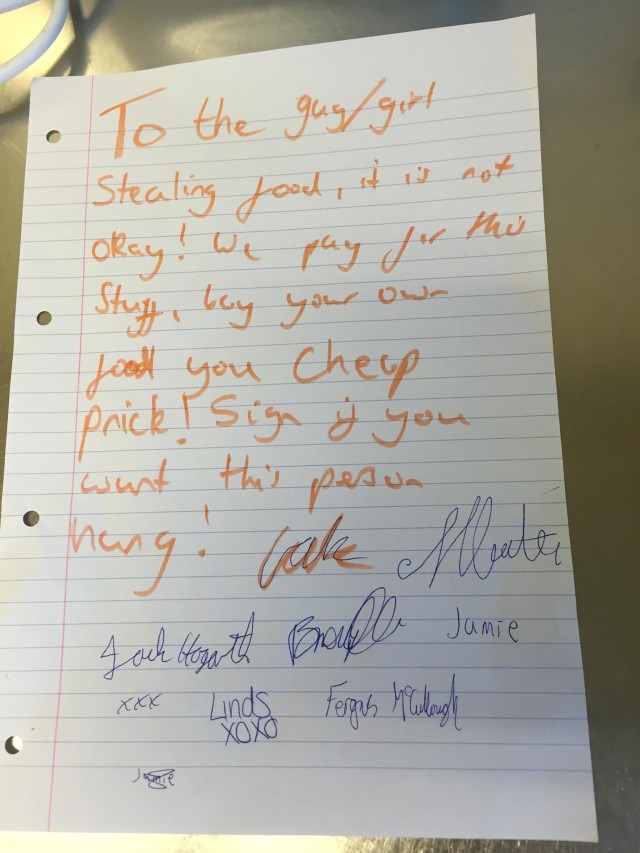 To the guy/girl
Stealing food, it is not
okay! We pay for this
Stuff, buy your own
food you cheap
prick! Sign if you
want this person
hung!
Jack Hogarth Jamie
xxx Linds Fergus McCullough
XOXO
Jamie